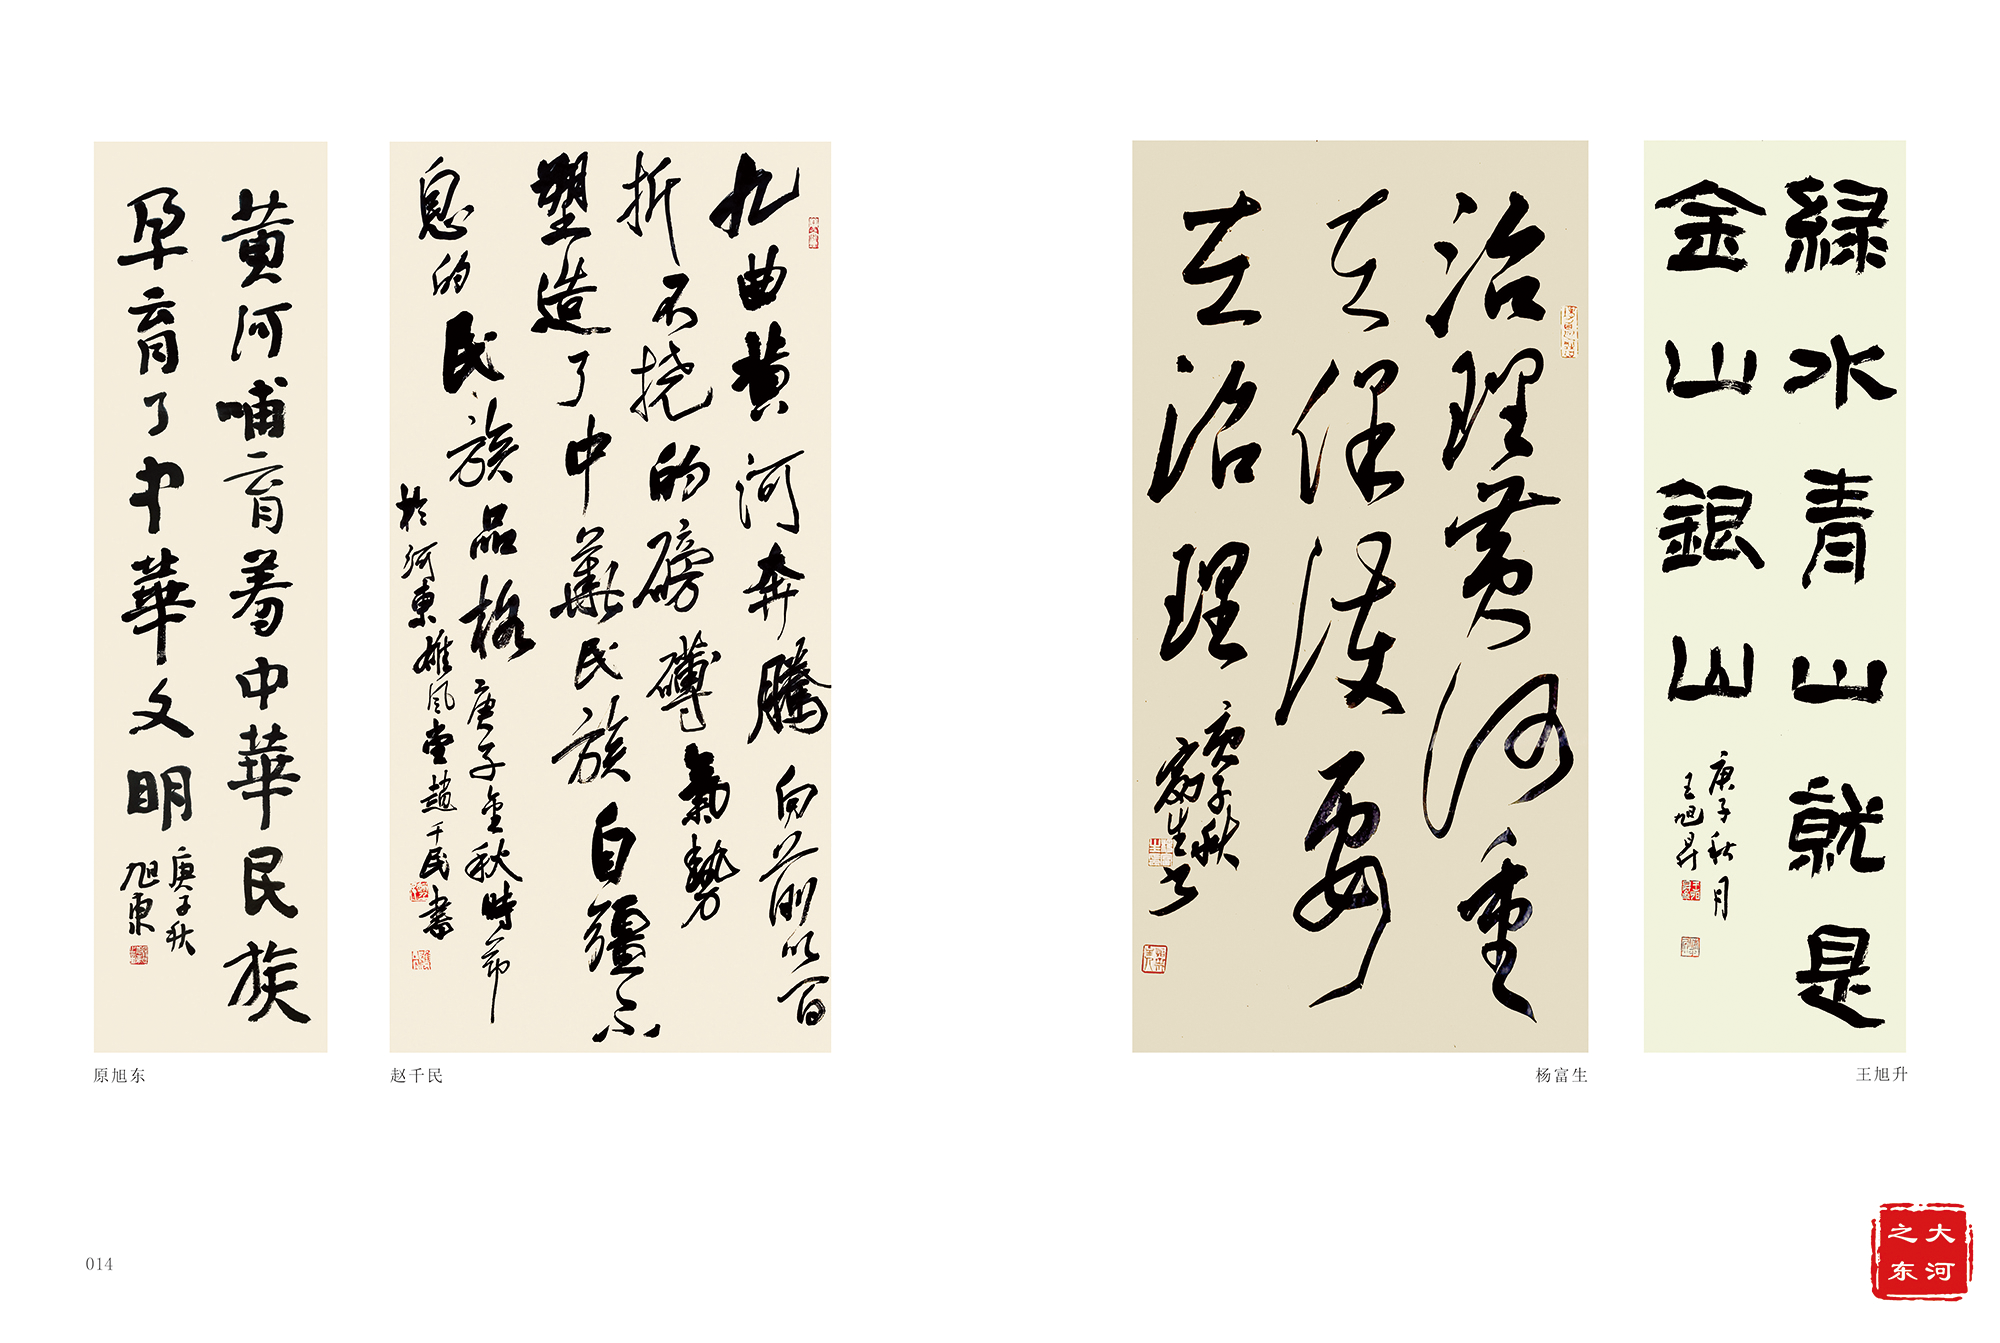 黄河哺育着中華民族
孕育了中華文明
庚子秋
旭東
原旭东
九曲黄河奔騰向前以百
折不挠的磅礴氣勢
塑造了中華民族自彊不
息的民族品格
庚子金秋時節
於河東雄風堂趙千民書
赵千民
治理黄河重
在保護要
在治理
庚子秋
富生书
杨富生
緑水青山就是
金山銀山
庚子秋月
王旭昇
王旭升
014
大河
之东